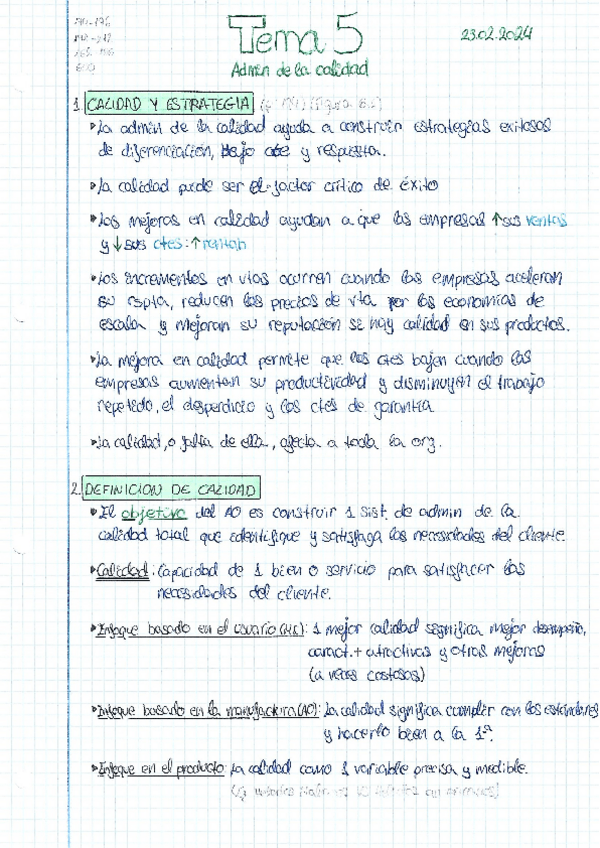 Tema 5
23.02.2024
Admin de la calidad
1. CALIDAD Y ESTRATEGIA
▸La admin de la calidad ayuda a construir estrategias exitosas
de diferenciación, bajo cte y respuesta.
▸La calidad puede ser el factor crítico de éxito
▸Las mejoras en calidad ayudan a que las empresas ↑sus ventas
y ↓sus ctes: ↑rentab
▸Los incrementos en vtas ocurren cuando las empresas aceleran
su rspta, reducen los precios de vta por las economías de
escala y mejoran su reputación se hay calidad en sus productos.
▸La mejora en calidad permite que los ctes bajen cuando las
empresas aumentan su productividad y disminuyen el trabajo
repetido, el desperdicio y los ctes de garantía
▸La calidad, o falta de ella, afecta a toda la org.
2. DEFINICION DE CALIDAD
▸El objetivo del AO es construir 1 sist. de admin de la
calidad total que identifique y satisfaga las necesidades del cliente.
▸Calidad: Capacidad de 1 bien o servicio para satisfacer las
necesidades del cliente.
▸Enfoque basado en el usuario (MK): 1 mejor calidad significa mejor desempeño,
caract. + atractivas y otras mejoras
(a veces costosas)
▸Enfoque basado en la manufactura (AO): La calidad significa cumplir con los estándares
y hacerlo bien a la 1ª.
▸Enfoque en el producto: La calidad como 1 variable precisa y medible.